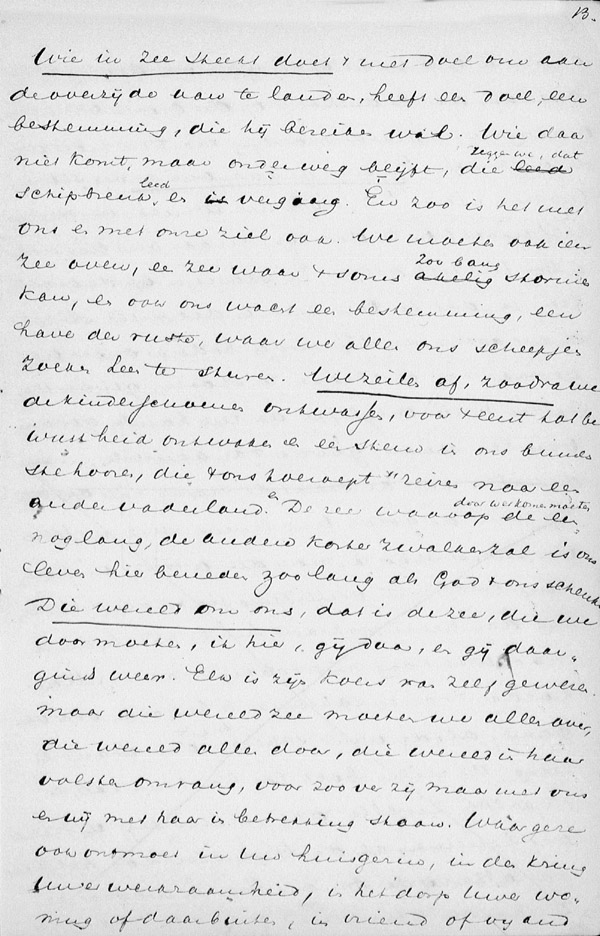 13.
Wie in zee steekt doet 't met doel om aan
de overzijde aan te landen, heeft een doel, een
bestemming, die hij bereiken wil. Wie daar
niet komt, maar onderweg blijft, die zeggen we, dat
schipbreuk leed en verging. En zoo is het met
ons en met onze ziel ook. We moeten ook een
zee over, een zee waar 't soms zoo bang stormen
kan, en ook ons wacht een bestemming, een
haven der ruste, waar we allen ons scheepje
zoeken heen te sturen. We zeilen af, zoodra we
de kinderschoenen ontwassen, voor 't eerst tot be
wustheid ontwaken en een stem in ons binnenste
hooren, die 't ons toeroept "reizen naar een
ander vaderland." De zee waarop de een
door we komen moeten en
nog lang, de andere korter zwalken zal is ons
leven hier beneden zoo lang als God 't ons schenkt.
Die wereld om ons, dat is de zee, die we
door moeten, ik hier, gij daar, en gij daar-
ginds weer. Elk is zijn koers van zelf gewezen
maar die wereldzee moeten we allen over,
die wereld allen door, die wereld in haar
volsten omvang, voor zoover zij maar met ons
en wij met haar in betrekking staan. Waar ge ze
ook ontmoet in Uw huisgezin, in den kring
Uwer werkzaamheid, in het dorp Uwer wo-
ning of daarbuiten, in vriend of vijand